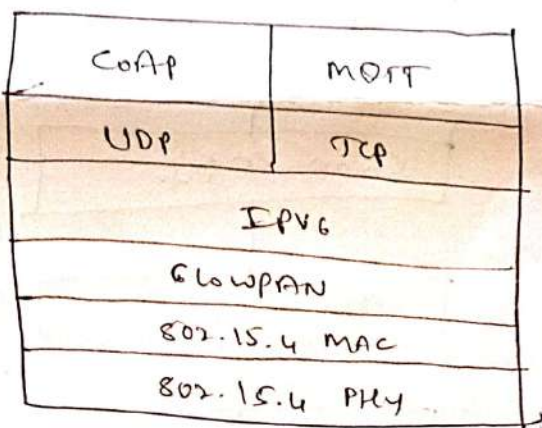 CoAP MQTT
UDP TCP
IPV6
6LowPAN
802.15.4 MAC
802.15.4 PHY